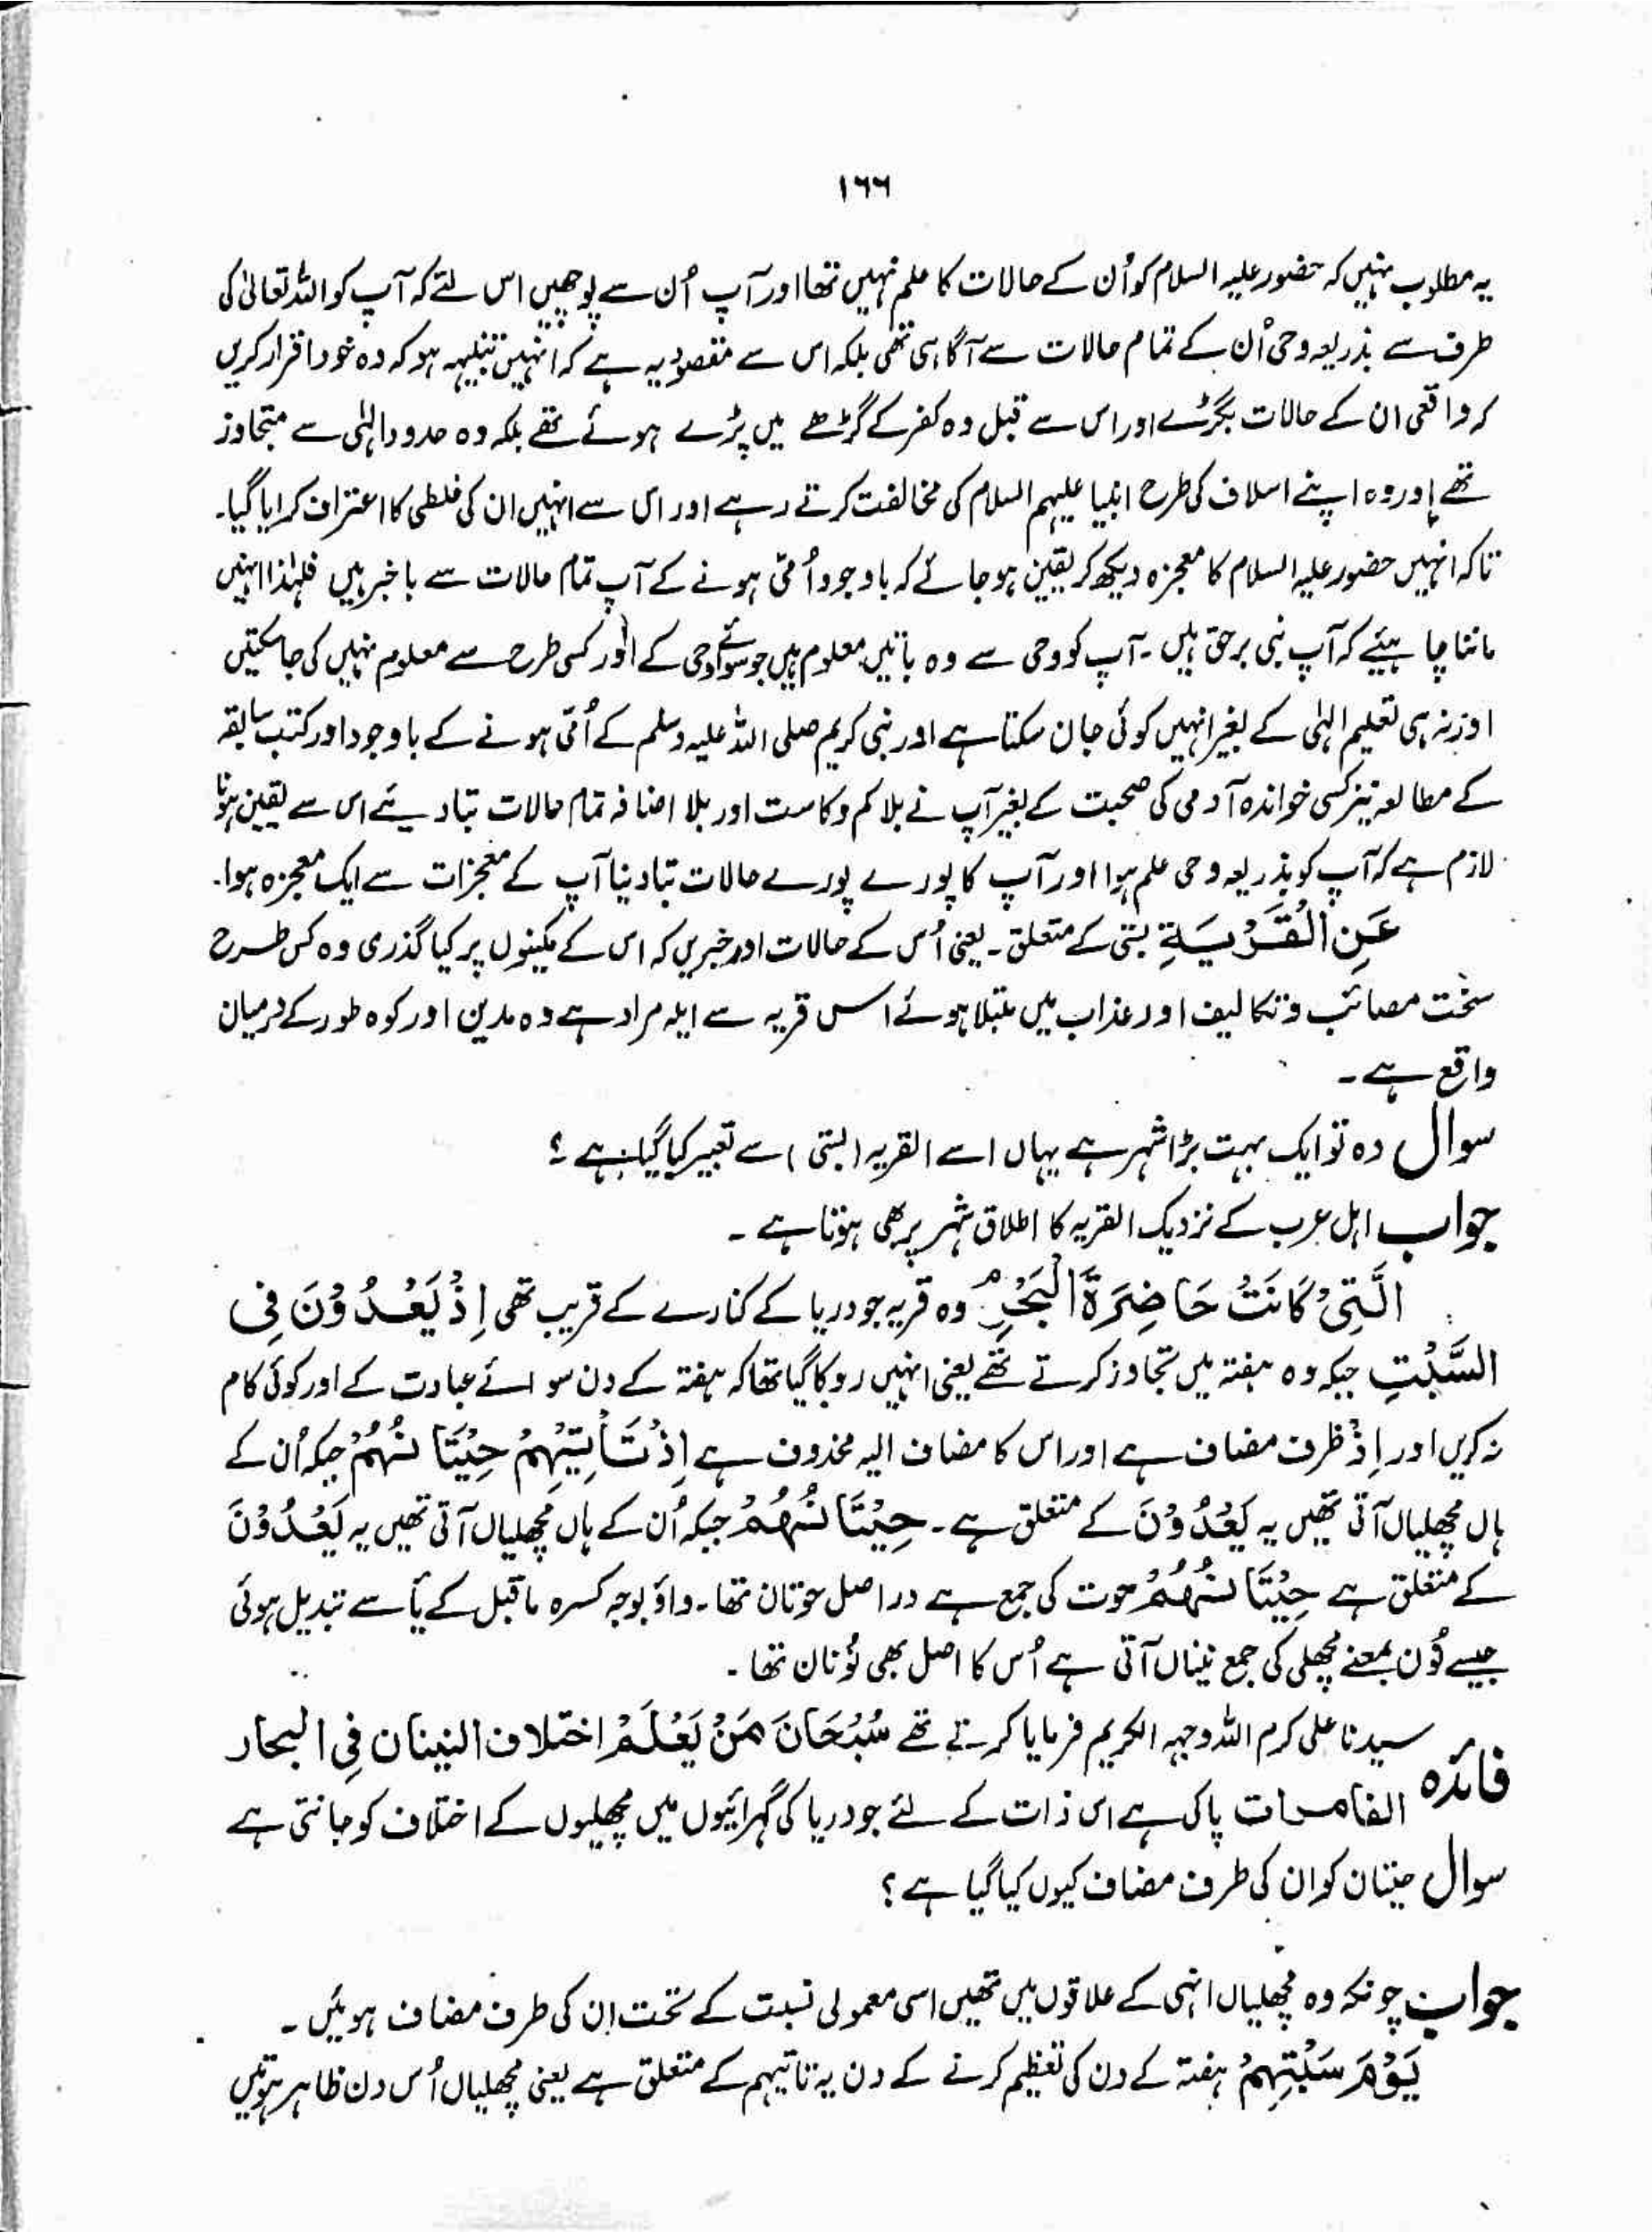 ١٦٦
یہ مطلوب نہیں کہ حضور علیہ السلام کو اُن کے حالات کا علم نہیں تھا اور آپ اُن سے پوچھیں اس لئے کہ آپ کو اللہ تعالیٰ کی
طرف سے بذریعہ وحی اُن کے تمام حالات سے آگاہی تھی بلکہ اس سے مقصود یہ ہے کہ انہیں تنبیہہ ہو کہ وہ خود اقرار کریں
کہ واقعی ان کے حالات بگڑے اور اس سے قبل وہ کفر کے گڑھے میں پڑے ہوئے تھے بلکہ وہ حدودِ الٰہی سے متجاوز
تھے اور وہ اپنے اسلاف کی طرح انبیا علیہم السلام کی مخالفت کرتے رہے اور اس سے انہیں ان کی غلطی کا اعتراف کرایا گیا۔
تاکہ انہیں حضور علیہ السلام کا معجزہ دیکھ کر یقین ہو جائے کہ باوجود اُمّی ہونے کے آپ تمام حالات سے باخبر ہیں فلہٰذا انہیں
ماننا چاہیئے کہ آپ نبی برحق ہیں ۔ آپ کو وحی سے وہ باتیں معلوم ہیں جو سوائے وحی کے اور کسی طرح سے معلوم نہیں کی جاسکتیں
اور نہ ہی تعلیم الٰہی کے بغیر انہیں کوئی جان سکتا ہے اور نبی کریم صلی اللہ علیہ وسلم کے اُمّی ہونے کے باوجود اور کتب سابقہ
کے مطالعہ نیز کسی خواندہ آدمی کی صحبت کے بغیر آپ نے بلا کم و کاست اور بلا اضافہ تمام حالات بتا دیئے اس سے یقین ہونا
لازم ہے کہ آپ کو بذریعہ وحی علم ہوا اور آپ کا پورے پورے حالات بتا دینا آپ کے معجزات سے ایک معجزہ ہوا۔
عَنِ الْقَرْیَةِ بستی کے متعلق ۔ یعنی اُس کے حالات اور خبریں کہ اس کے مکینوں پر کیا گذری وہ کس طرح
سخت مصائب و تکالیف اور عذاب میں مبتلا ہوئے اس قریہ سے ایلہ مراد ہے وہ مدین اور کوہ طور کے درمیان
واقع ہے ۔
سوال وہ تو ایک بہت بڑا شہر ہے یہاں اسے القریہ (بستی) سے تعبیر کیا گیا ہے ؟
جواب اہل عرب کے نزدیک القریہ کا اطلاق شہر پر بھی ہوتا ہے ۔
الَّتِیْ کَانَتْ حَاضِرَةَ الْبَحْرِ وہ قریہ جو دریا کے کنارے کے قریب تھی اِذْ یَعْدُوْنَ فِی
السَّبْتِ جبکہ وہ ہفتہ میں تجاوز کرتے تھے یعنی انہیں روکا گیا تھا کہ ہفتہ کے دن سوائے عبادت کے اور کوئی کام
نہ کریں اور اِذْ ظرف مضاف ہے اور اس کا مضاف الیہ محذوف ہے اِذْ تَأْتِیْهِمْ حِیْتَانُهُمْ جبکہ اُن کے
ہاں مچھلیاں آتی تھیں یہ یَعْدُوْنَ کے متعلق ہے ۔ حِیْتَانُهُمْ جبکہ اُن کے ہاں مچھلیاں آتی تھیں یہ یَعْدُوْنَ
کے متعلق ہے حِیْتَانُهُمْ حوت کی جمع ہے دراصل حوتان تھا ۔ واؤ بوجہ کسرہ ماقبل کے یأ سے تبدیل ہوئی
جیسے نُون بمعنے مچھلی کی جمع نینان آتی ہے اُس کا اصل بھی نُونان تھا ۔
فائدہ سیدنا علی کرم اللہ وجہہ الکریم فرمایا کرتے تھے سُبْحَانَ مَنْ یَعْلَمُ اختلاف النینان فِی البحار
الغامسات پاکی ہے اس ذات کے لئے جو دریا کی گہرائیوں میں مچھلیوں کے اختلاف کو جانتی ہے
سوال حیتان کو ان کی طرف مضاف کیوں کیا گیا ہے ؟
جواب چونکہ وہ مچھلیاں انہی کے علاقوں میں تھیں اسی معمولی نسبت کے تحت ان کی طرف مضاف ہوئیں ۔
یَوْمَ سَبْتِهِمْ ہفتہ کے دن کی تعظیم کرنے کے دن یہ تاتیہم کے متعلق ہے یعنی مچھلیاں اُس دن ظاہر ہوتیں